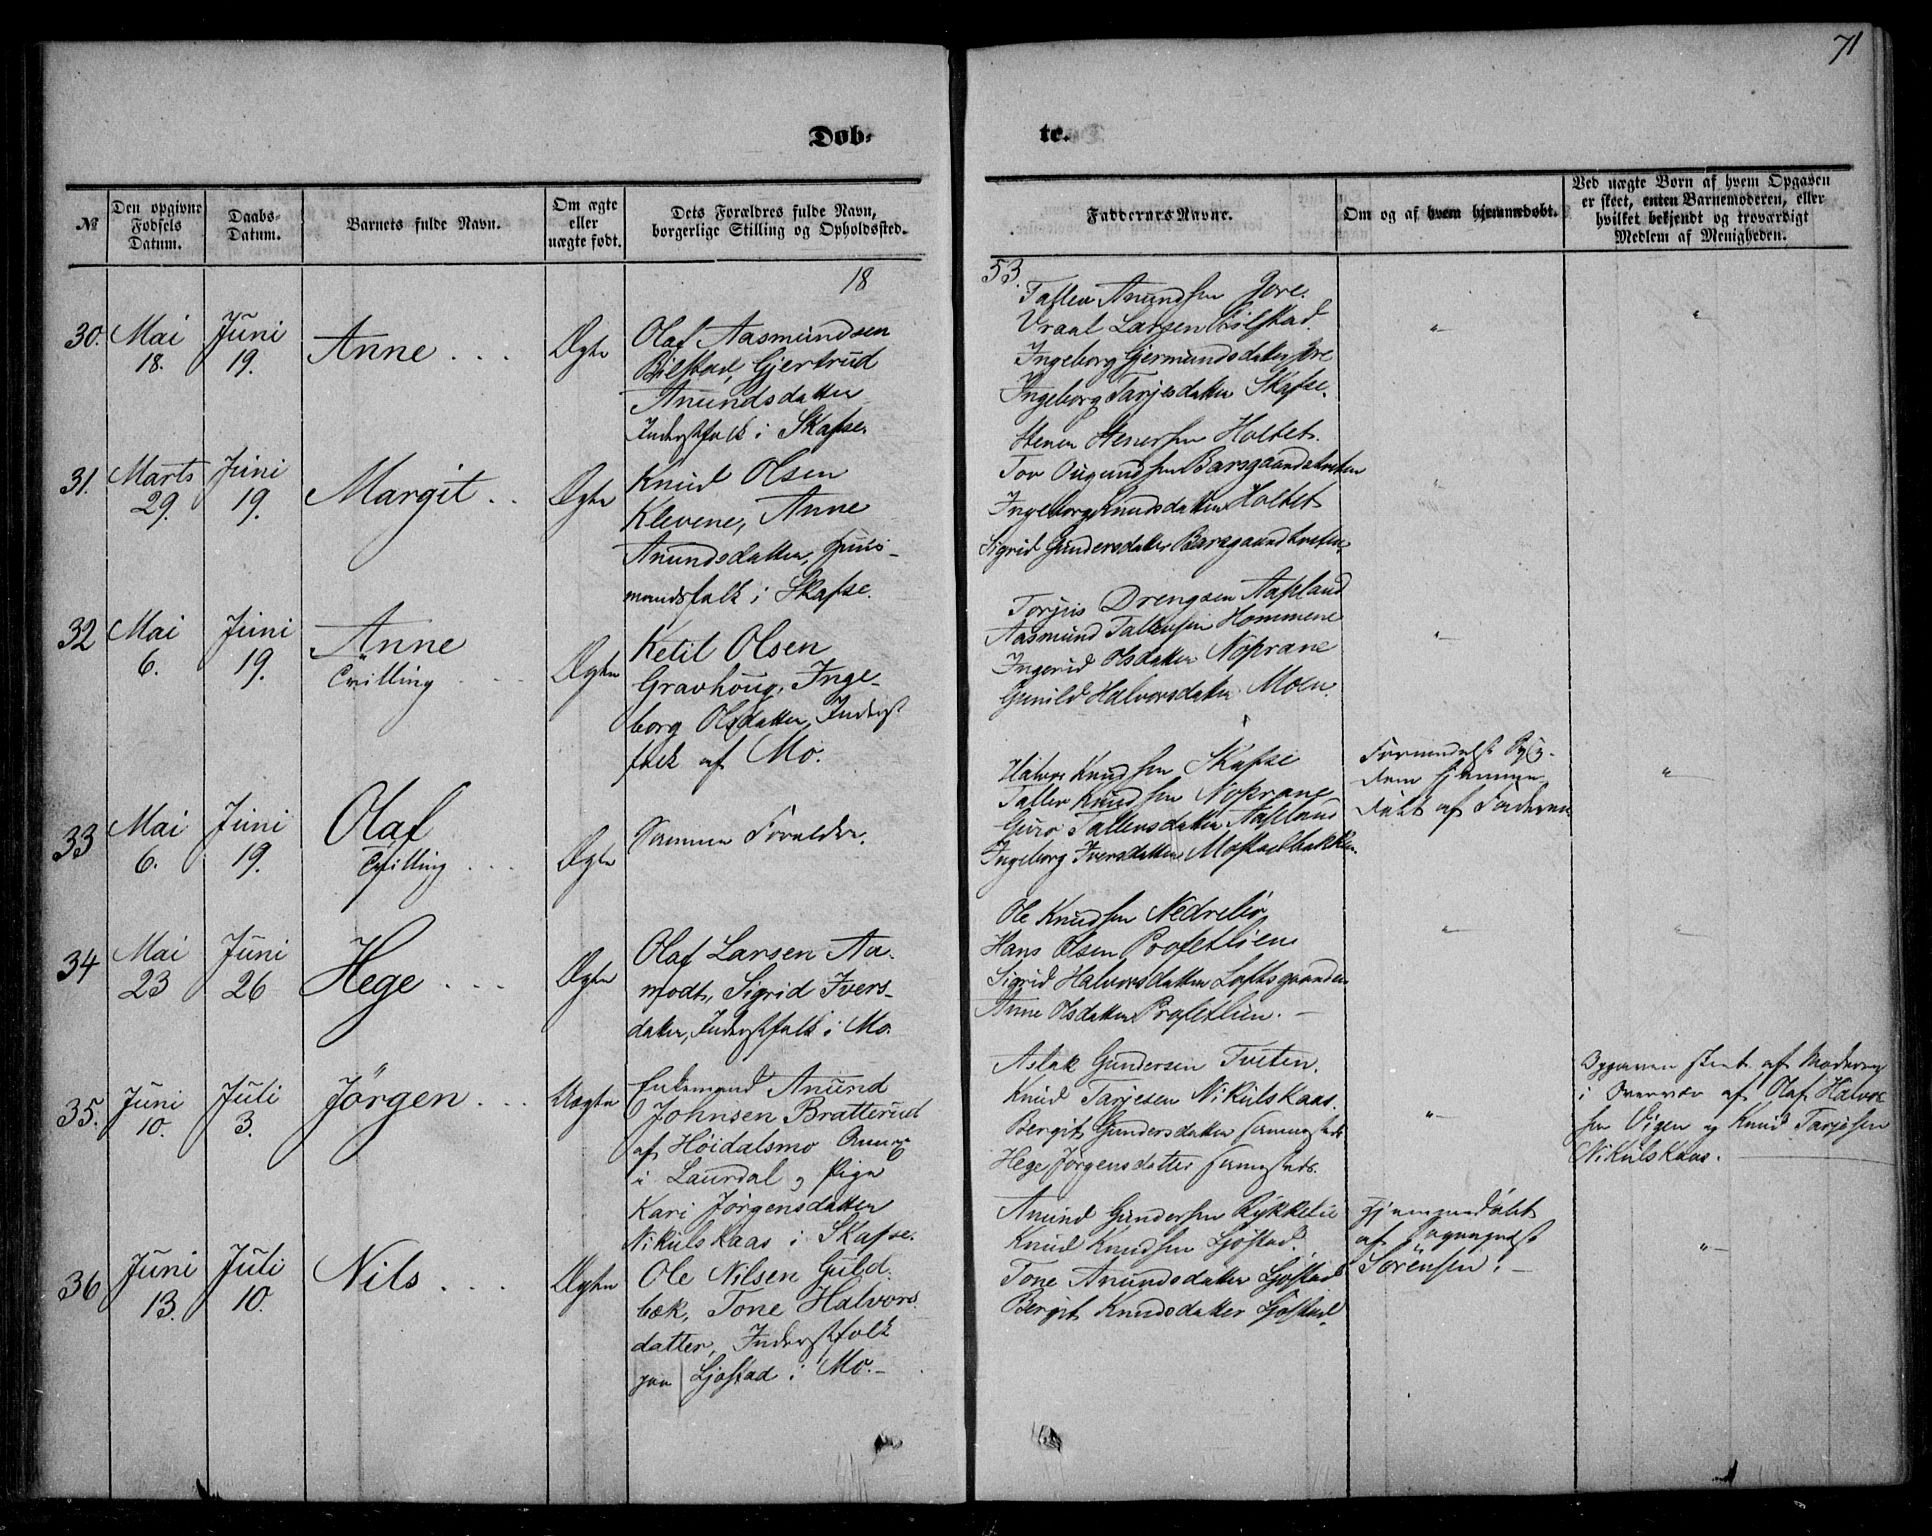 71
Döb-
te.
№
Den opgivne Fødsels Datum.
Daabs-Datum.
Barnets fulde Navn.
Om ægte eller uægte født.
Dets Forældres fulde Navn, borgerlige Stilling og Opholdssted.
Faddernes Navne.
Om og af hvem hjemmedøbt.
Ved uægte Børn af hvem Opgaven er skeet, enten Barnemoderen, eller hvilket bekjendt og troværdigt Medlem af Menigheden.
18
53.
30. Mai 18. Juni 19. Anne Ægte
Olaf Aasmundsen
Bilstad, Gjertrud
Anundsdatter
Inderstfolk i Skafse.
Tallev Anundsen Jore.
Vraal Larsen Bilstad.
Ingeborg Gjermundsdatter Jore
Ingeborg Tarjesdatter Skafse.
31. Marts 29. Juni 19. Margit Ægte
Knud Olsen
Klevene, Anne
Anundsdatter, Huus-
mandsfolk i Skafse.
Stener Stenersen Holtet.
Tov Ougundsen
Ingeborg Knudsdatter Holtet
Sigrid Gundersdatter
32 Mai 6. Juni 19. Anne Tvilling Ægte
Ketil Olsen
Gravhoug, Inge-
borg Olsdatter, Inderst
folk af Mo.
Torjus Drengsen Aasland
Aasmund Tallevsen Hommene
Ingerid Olsdatter Noprane
Gunild Halvorsdatter Moen.
33 Mai 6. Juni 19. Olaf Tvilling Ægte
Samme Forældre.
Halvor Knudsen Skafse
Tallev Knudsen Noprane
Guro Tallevsdatter Aasland
Ingeborg Iversdatter
Formedelst Syg-
dom hjemme-
døbt af Faderen
34 Mai 23 Juni 26 Hege Ægte
Olaf Larsen Aa-
modt, Sigrid Ivers-
datter, Inderstfolk i Mo.
Ole Knudsen Nedrebø
Hans Olsen Profetlien
Sigrid Halvorsdatter Loftsgaarden
Anne Olsdatter Profetlien.
35. Juni 10. Juli 3. Jörgen Uægte
Enkemand Anund
Johnsen Bratterud
af Höidalsmo
i Laurdal og Pige
Kari Jørgensdatter
Nikulskaas i Skafse.
Aslak Gundersen Tveten.
Knud Tarjesen Nikulskaas.
Bergit Gundersdatter sammesteds
Hege Jørgensdatter sammesteds.
Opgaven skeet af Moderen
i Overvær af Olaf Halvor
sen Vigen og Knud Tarjesen
Nikulskaas.
36 Juni 13. Juli 10. Nils Ægte
Ole Nilsen Guld-
bæk, Tone Halvors-
datter, Inderstfolk
paa Ljøstad i Mo.
Anund Gundersen Rykkelie
Knud Knudsen Ljøstad.
Tone Anundsdatter Ljøstad
Bergit Knudsdatter Ljøstad.
Hjemmedöbt
af Sogneprest
Sörensen.